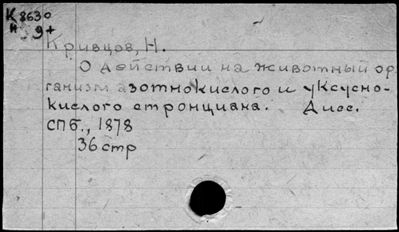 К 8630
н 9+
Кривцов, Н.
О действии на животный ор-
ганизм азотнокислого и уксусно-
кислого стронциана. Дисс.
СПб., 1878
36 стр